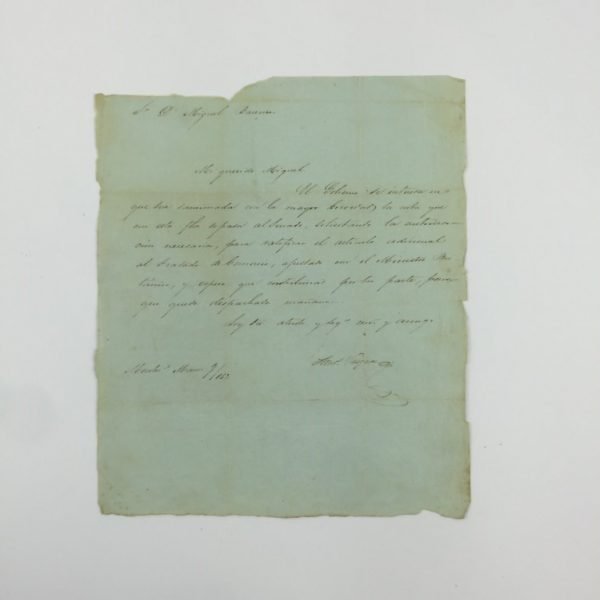 Sr. D. Miguel
Mi querido Miguel
El Gobierno se interesa en
que sea examinada con la mayor brevedad la nota que
con esta fha se pasa al Senado, solicitando la autoriza-
cion necesaria, para ratificar el artículo adicional
al Tratado de Comercio, ajustado con el Ministro
y espera que contribuirás por tu parte, para
que quede despachado mañana.
Soy tu atento y amigo